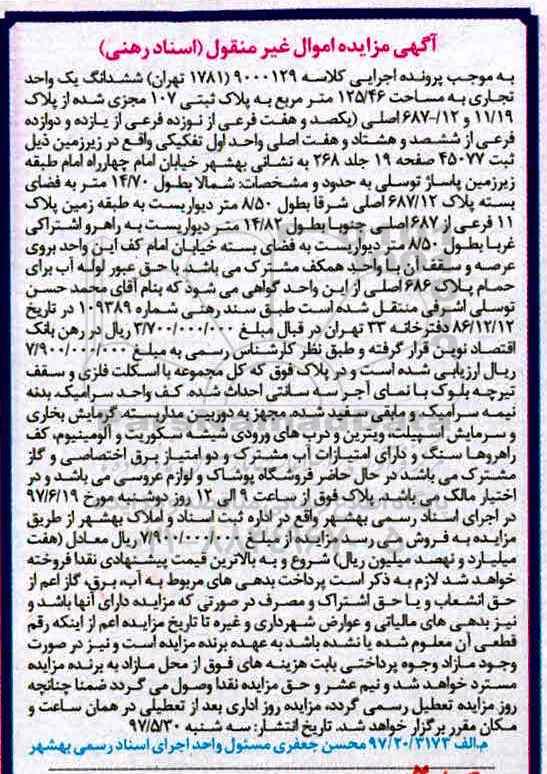 آگهی مزایده اموال غیر منقول (اسناد رهنی)
به موجب پرونده اجرایی کلاسه ۹۰۰۰۱۲۹ (۱۷۸۱ تهران) ششدانگ یک واحد
تجاری به مساحت ۱۲۵/۴۶ متر مربع به پلاک ثبتی ۱۰۷ مجزی شده از پلاک
۱۱/۱۹ و ۱۲/-۶۸۷ اصلی (یکصد و هفت فرعی از نوزده فرعی از یازده و دوازده
فرعی از ششصد و هشتاد و هفت اصلی واحد اول تفکیکی واقع در زیرزمین ذیل
ثبت ۴۵۰۷۷ صفحه ۱۹ جلد ۲۶۸ به نشانی بهشهر خیابان امام چهارراه امام طبقه
زیرزمین پاساژ توسلی به حدود و مشخصات: شمالا بطول ۱۴/۷۰ متر به فضای
بسته پلاک ۶۸۷/۱۲ اصلی شرقا بطول ۸/۵۰ متر دیواریست به طبقه زمین پلاک
۱۱ فرعی از ۶۸۷ اصلی جنوبا بطول ۱۴/۸۲ متر دیواریست به راهرو اشتراکی
غربا بطول ۸/۵۰ متر دیواریست به فضای بسته خیابان امام کف این واحد بروی
عرصه و سقف آن با واحد همکف مشترک می باشد. با حق عبور لوله آب برای
حمام پلاک ۶۸۶ اصلی از این واحد گواهی می شود که بنام آقای محمد حسن
توسلی اشرفی منتقل شده است طبق سند رهنی شماره ۱۰۹۳۸۹ در تاریخ
۸۶/۱۲/۱۲ دفترخانه ۳۳ تهران در قبال مبلغ ۳/۷۰۰/۰۰۰/۰۰۰ ریال در رهن بانک
اقتصاد نوین قرار گرفته و طبق نظر کارشناس رسمی به مبلغ ۷/۹۰۰/۰۰۰/۰۰۰
ریال ارزیابی شده است و در پلاک فوق که کل مجموعه با اسکلت فلزی و سقف
تیرچه بلوک با نمای آجر سه سانتی احداث شده. کف واحد سرامیک، بدنه
نیمه سرامیک و مابقی سفید شده، مجهز به دوربین مداربسته، گرمایش بخاری
و سرمایش اسپیلت، ویترین و درب های ورودی شیشه سکوریت و آلومینیوم، کف
راهروها سنگ و دارای امتیازات آب مشترک و دو امتیاز برق اختصاصی و گاز
مشترک می باشد در حال حاضر فروشگاه پوشاک و لوازم عروسی می باشد و در
اختیار مالک می باشد. پلاک فوق از ساعت ۹ الی ۱۲ روز دوشنبه مورخ ۹۷/۶/۱۹
در اجرای اسناد رسمی بهشهر واقع در اداره ثبت اسناد و املاک بهشهر از طریق
مزایده به فروش می رسد مزایده از مبلغ ۷/۹۰۰/۰۰۰/۰۰۰ ریال معادل (هفت
میلیارد و نهصد میلیون ریال) شروع و به بالاترین قیمت پیشنهادی نقدا فروخته
خواهد شد لازم به ذکر است پرداخت بدهی های مربوط به آب، برق، گاز اعم از
حق انشعاب و یا حق اشتراک و مصرف در صورتی که مزایده دارای آنها باشد و
نیز بدهی های مالیاتی و عوارض شهرداری و غیره تا تاریخ مزایده اعم از اینکه رقم
قطعی آن معلوم شده یا نشده باشد به عهده برنده مزایده است و نیز در صورت
وجود مازاد وجوه پرداختی بابت هزینه های فوق از محل مازاد به برنده مزایده
مسترد خواهد شد و نیم عشر و حق مزایده نقدا وصول می گردد ضمنا چنانچه
روز مزایده تعطیل رسمی گردد، مزایده روز اداری بعد از تعطیلی در همان ساعت و
مکان مقرر برگزار خواهد شد. تاریخ انتشار: سه شنبه ۹۷/۵/۳۰
م.الف ۹۷/۲۰/۳۱۷۳ محسن جعفری مسئول واحد اجرای اسناد رسمی بهشهر